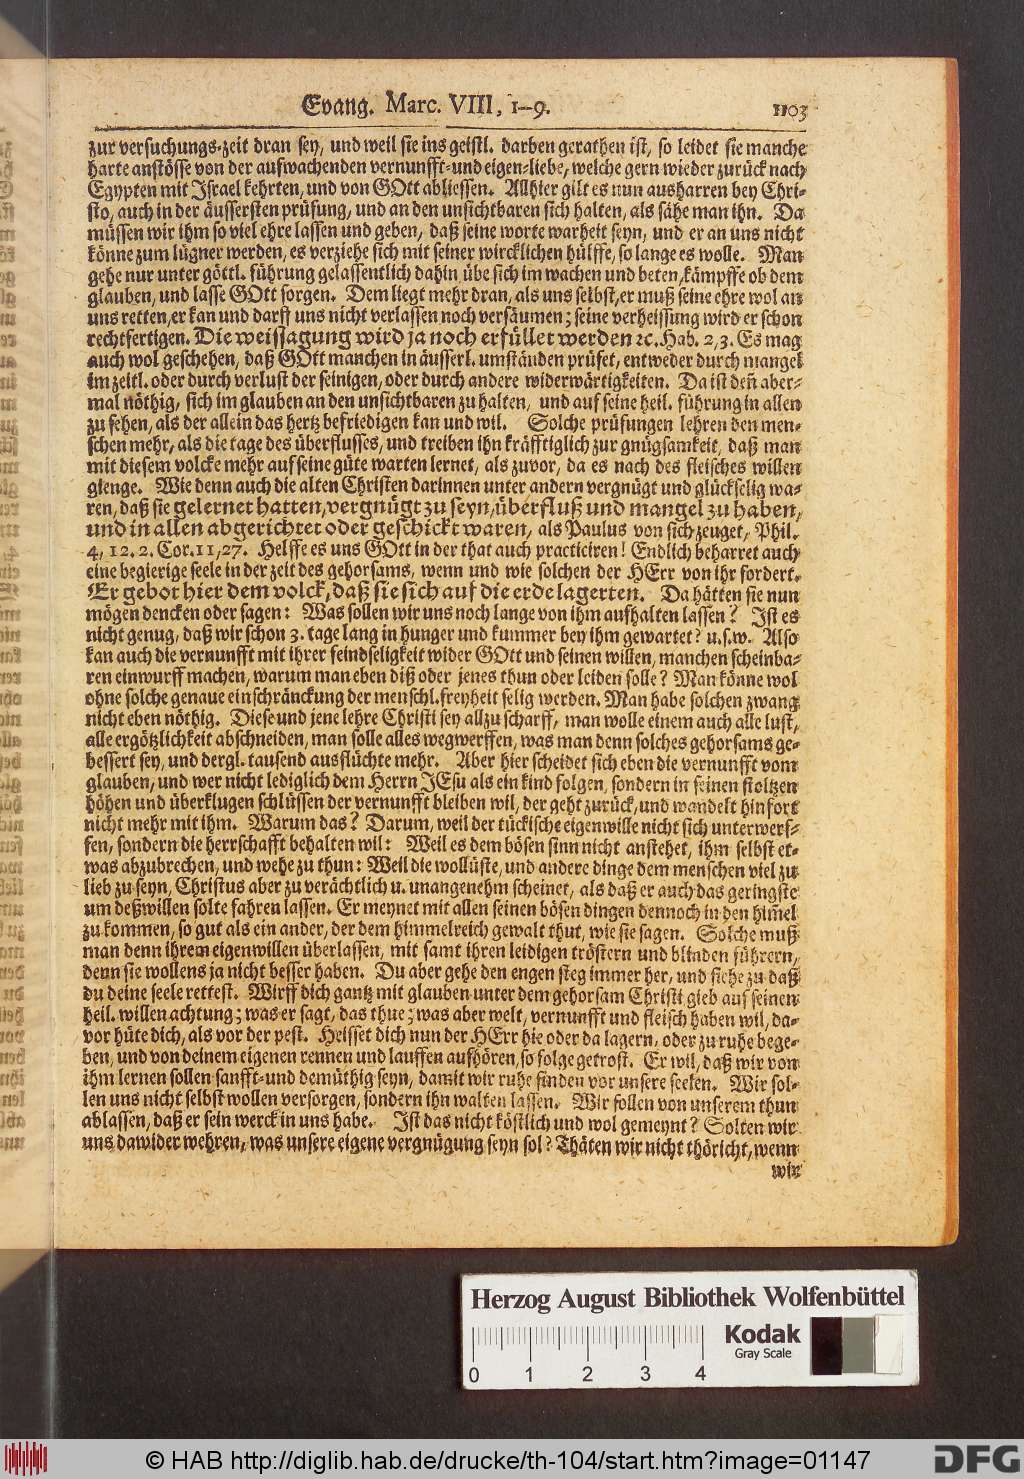 Evang. Marc. VIII, 1-9. 1103
zur versuchungs-zeit dran sey, und weil sie ins geistl. darben gerathen ist, so leidet sie manche
harte anstösse von der aufwachenden vernunfft-und eigen-liebe, welche gern wieder zurück nach
Egypten mit Israel kehrten, und von GOtt abliessen. Allhier gilt es nun ausharren bey Chri-
sto, auch in der äussersten prüfung, und an den unsichtbaren sich halten, als sähe man ihn. Da
müssen wir ihm so viel ehre lassen und geben, daß seine worte warheit seyn, und er an uns nicht
könne zum lügner werden, es verziehe sich mit seiner wircklichen hülffe, so lange es wolle. Man
gehe nur unter göttl. führung gelassentlich dahin übe sich im wachen und beten, kämpffe ob dem
glauben, und lasse GOtt sorgen. Dem liegt mehr dran, als uns selbst, er muß seine ehre wol an
uns retten, er kan und darff uns nicht verlassen noch versäumen; seine verheissung wird er schon
rechtfertigen. Die weissagung wird ja noch erfüllet werden ꝛc. Hab. 2, 3. Es mag
auch wol geschehen, daß GOtt manchen in äusserl. umständen prüfet, entweder durch mangel
im zeitl. oder durch verlust der seinigen, oder durch andere widerwärtigkeiten. Da ist deñ aber-
mal nöthig, sich im glauben an den unsichtbaren zu halten, und auf seine heil. führung in allen
zu sehen, als der allein das hertz befriedigen kan und wil. Solche prüfungen lehren den men-
schen mehr, als die tage des überflusses, und treiben ihn kräfftiglich zur gnügsamkeit, daß man
mit diesem volcke mehr auf seine güte warten lernet, als zuvor, da es nach des fleisches willen
gienge. Wie denn auch die alten Christen darinnen unter andern vergnügt und glückselig wa-
ren, daß sie gelernet hatten, vergnügt zu seyn, überfluß und mangel zu haben,
und in allen abgerichtet oder geschickt waren, als Paulus von sich zeuget, Phil.
4, 12. 2. Cor. 11, 27. Helffe es uns GOtt in der that auch practiciren! Endlich beharret auch
eine begierige seele in der zeit des gehorsams, wenn und wie solchen der HErr von ihr fordert.
Er gebot hier dem volck, daß sie sich auf die erde lagerten. Da hätten sie nun
mögen dencken oder sagen: Was sollen wir uns noch lange von ihm aufhalten lassen? Ist es
nicht genug, daß wir schon 3. tage lang in hunger und kummer bey ihm gewartet? u.s.w. Also
kan auch die vernunfft mit ihrer feindseligkeit wider GOtt und seinen willen, manchen scheinba-
ren einwurff machen, warum man eben diß oder jenes thun oder leiden solle? Man könne wol
ohne solche genaue einschränckung der menschl. freyheit selig werden. Man habe solchen zwang
nicht eben nöthig. Diese und jene lehre Christi sey allzu scharff, man wolle einem auch alle lust,
alle ergötzlichkeit abschneiden, man solle alles wegwerffen, was man denn solches gehorsams ge-
bessert sey, und dergl. tausend ausflüchte mehr. Aber hier scheidet sich eben die vernunfft vom
glauben, und wer nicht lediglich dem Herrn JEsu als ein kind folgen, sondern in seinen stoltzen
höhen und überklugen schlüssen der vernunfft bleiben wil, der geht zurück, und wandelt hinfort
nicht mehr mit ihm. Warum das? Darum, weil der tückische eigenwille nicht sich unterwerf-
fen, sondern die herrschafft behalten wil: Weil es dem bösen sinn nicht anstehet, ihm selbst et-
was abzubrechen, und wehe zu thun: Weil die wollüste, und andere dinge dem menschen viel zu
lieb zu seyn, Christus aber zu verächtlich u. unangenehm scheinet, als daß er auch das geringste
um deßwillen solte fahren lassen. Er meynet mit allen seinen bösen dingen dennoch in den him̃el
zu kommen, so gut als ein ander, der dem himmelreich gewalt thut, wie sie sagen. Solche muß
man denn ihrem eigenwillen überlassen, mit samt ihren leidigen tröstern und blinden führern,
denn sie wollens ja nicht besser haben. Du aber gehe den engen steg immer her, und siehe zu daß
du deine seele rettest. Wirff dich gantz mit glauben unter dem gehorsam Christi gieb auf seinen
heil. willen achtung; was er sagt, das thue; was aber welt, vernunfft und fleisch haben wil, da-
vor hüte dich, als vor der pest. Heisset dich nun der HErr hie oder da lagern, oder zu ruhe bege-
ben, und von deinem eigenen rennen und lauffen aufhören, so folge getrost. Er wil, daß wir von
ihm lernen sollen sanfft-und demüthig seyn, damit wir ruhe finden vor unsere seelen. Wir sol-
len uns nicht selbst wollen versorgen, sondern ihn walten lassen. Wir sollen von unserem thun
ablassen, daß er sein werck in uns habe. Ist das nicht köstlich und wol gemeynt? Solten wir
uns dawider wehren, was unsere eigene vergnügung seyn sol? Thäten wir nicht thöricht, wenn
wir
Herzog August Bibliothek Wolfenbüttel
Kodak
Gray Scale
0 1 2 3 4
© HAB http://diglib.hab.de/drucke/th-104/start.htm?image=01147
DFG